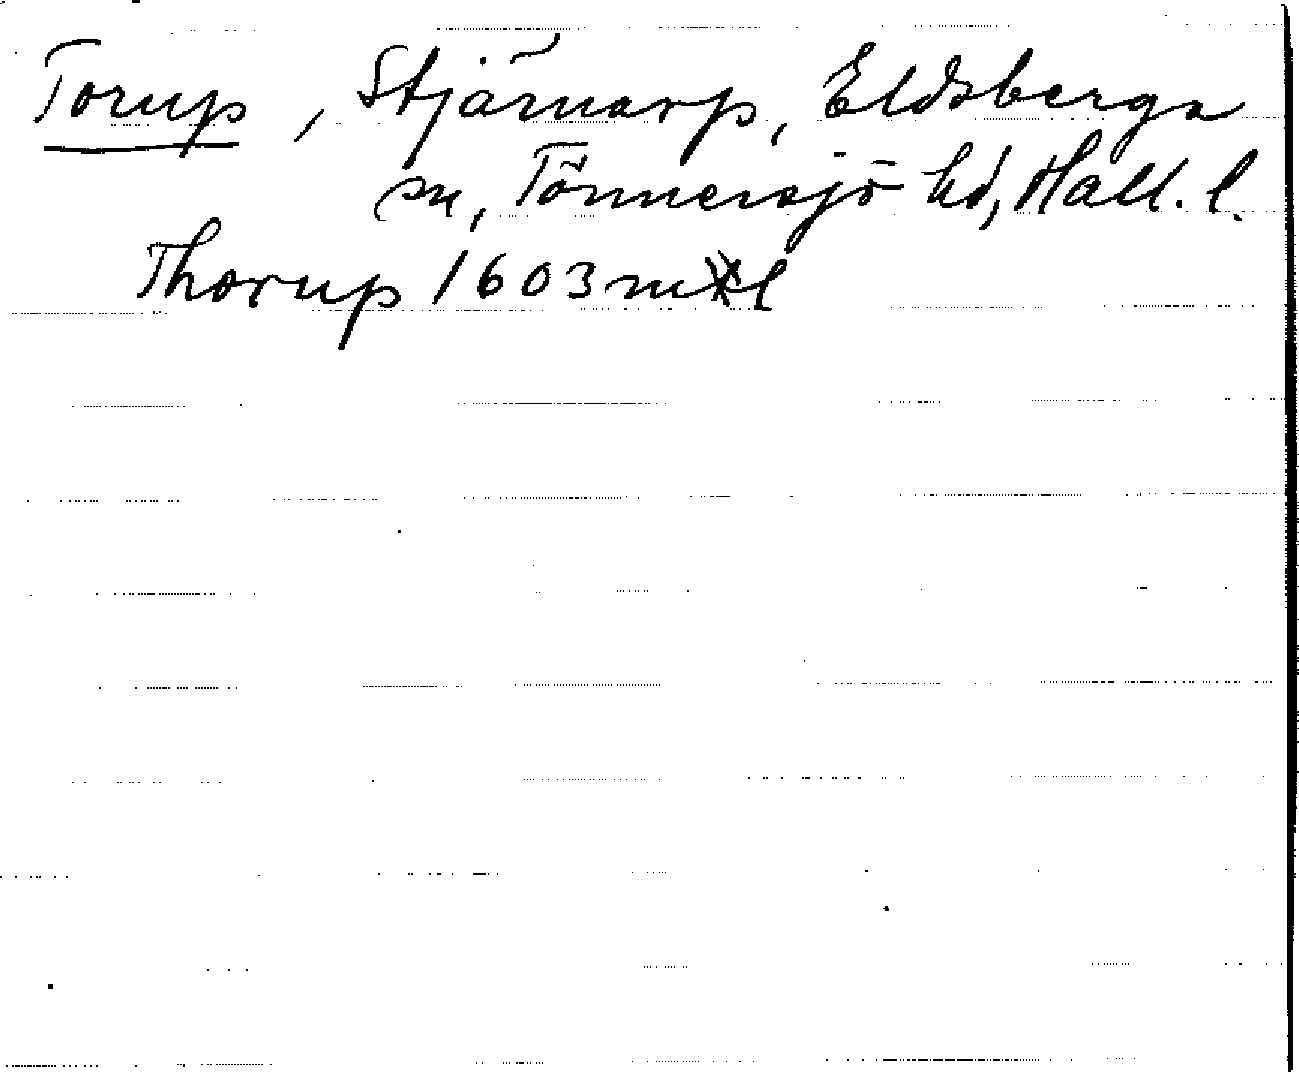 Torup, Stjärnarp, Eldsberga
sn, Tönnersjö hd, Hall. l.
Thorup 1603 ml